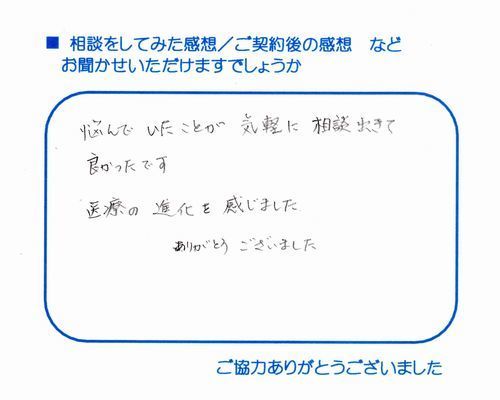 ■ 相談をしてみた感想／ご契約後の感想 など
お聞かせいただけますでしょうか
悩んで いたことが 気軽に 相談出きて
良かったです
医療の 進化を 感じました
ありがとう ございました
ご協力ありがとうございました